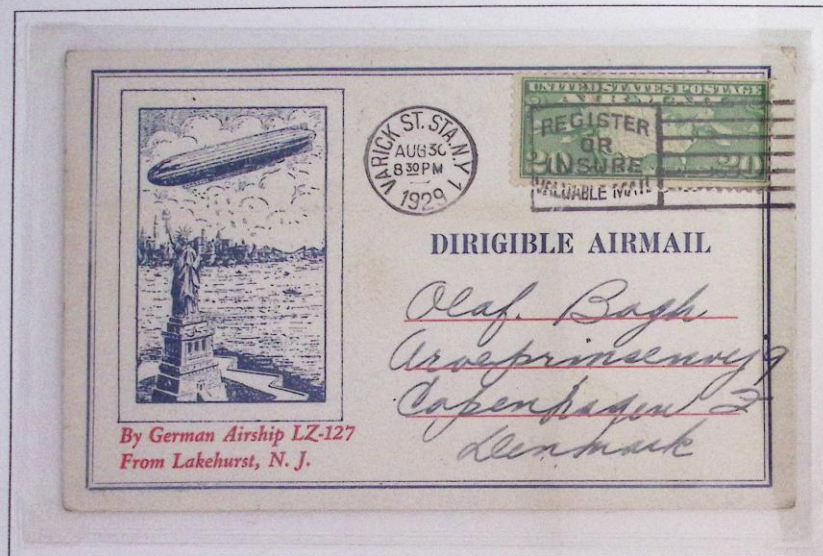 VARICK ST. STA. N.Y. 1
AUG 30
8 30 PM
1929
UNITED STATES POSTAGE
20 20
REGISTER
OR
INSURE
VALUABLE MAIL
DIRIGIBLE AIRMAIL
Olaf. Bagh
Copenhagen F
Denmark
By German Airship LZ-127
From Lakehurst, N. J.